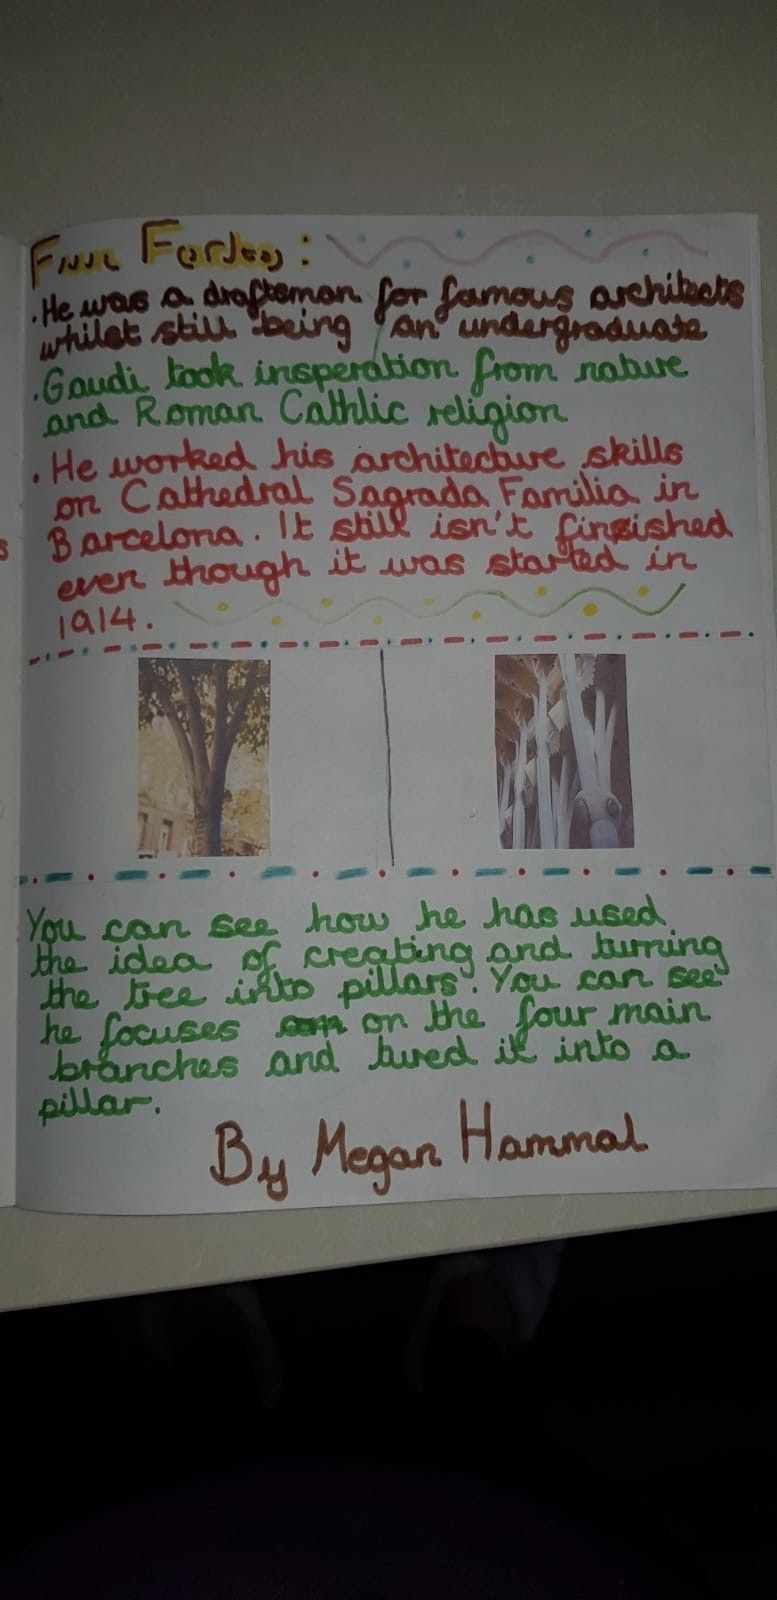 Fun Facts:
. He was a draftsman for famous architects
whilst still being an undergraduate
. Gaudi took insperation from nature
and Roman Cathlic religion
. He worked his architecture skills
on Cathedral Sagrada Familia in
Barcelona. It still isn't finished
even though it was started in
1914.
You can see how he has used
the idea of creating and turning
the tree into pillars. You can see
he focuses on the four main
branches and tured it into a
pillar.
By Megan Hammal